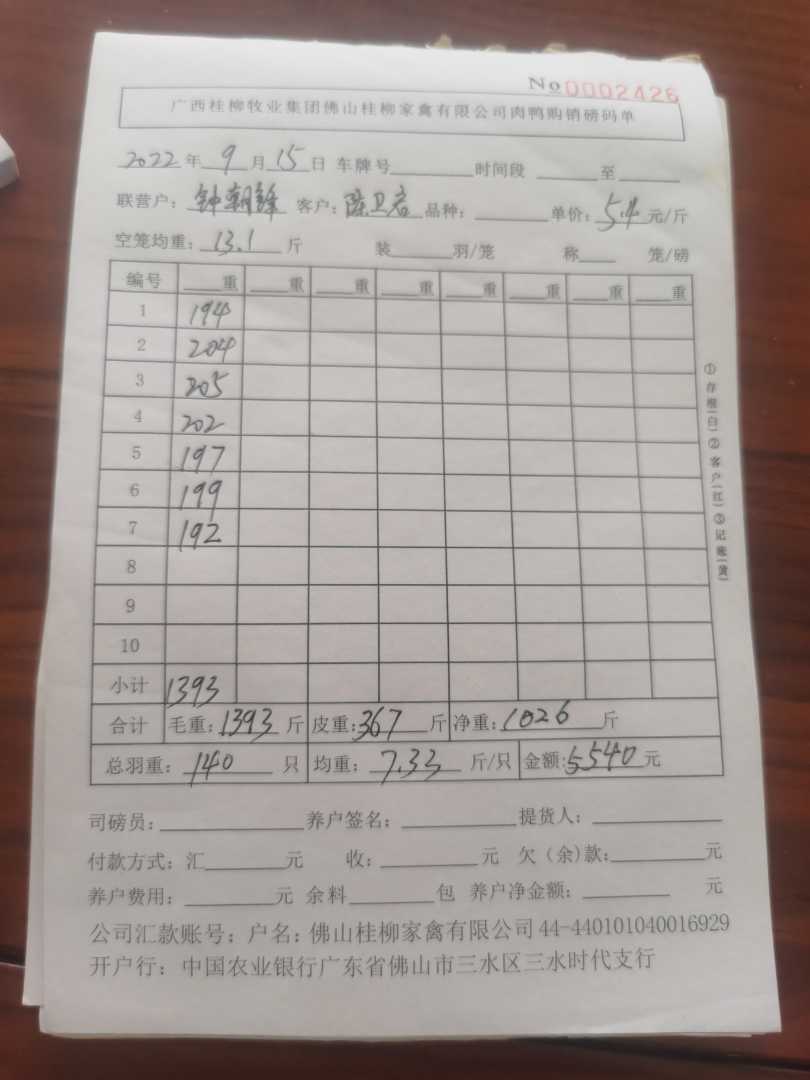 No 0002426
广西桂柳牧业集团佛山桂柳家禽有限公司肉鸭购销磅码单
2022年9月15日 车牌号 时间段 至
联营户：钟朝锋 客户：陈卫君 品种： 单价：5.4元/斤
空笼均重：13.1斤 装 羽/笼 称 笼/磅
编号 重 重 重 重 重 重 重 重
1 194
2 204
3 205
4 202
5 197
6 199
7 192
8
9
10
小计 1393
合计 毛重：1393斤 皮重：367斤 净重：1026斤
总羽重：140只 均重：7.33斤/只 金额：5540元
司磅员： 养户签名： 提货人：
付款方式：汇 元 收： 元 欠（余）款： 元
养户费用： 元 余料 包 养户净金额： 元
公司汇款账号：户名：佛山桂柳家禽有限公司 44-440101040016929
开户行：中国农业银行广东省佛山市三水区三水时代支行
①存根（白）②客户（红）③记账（黄）